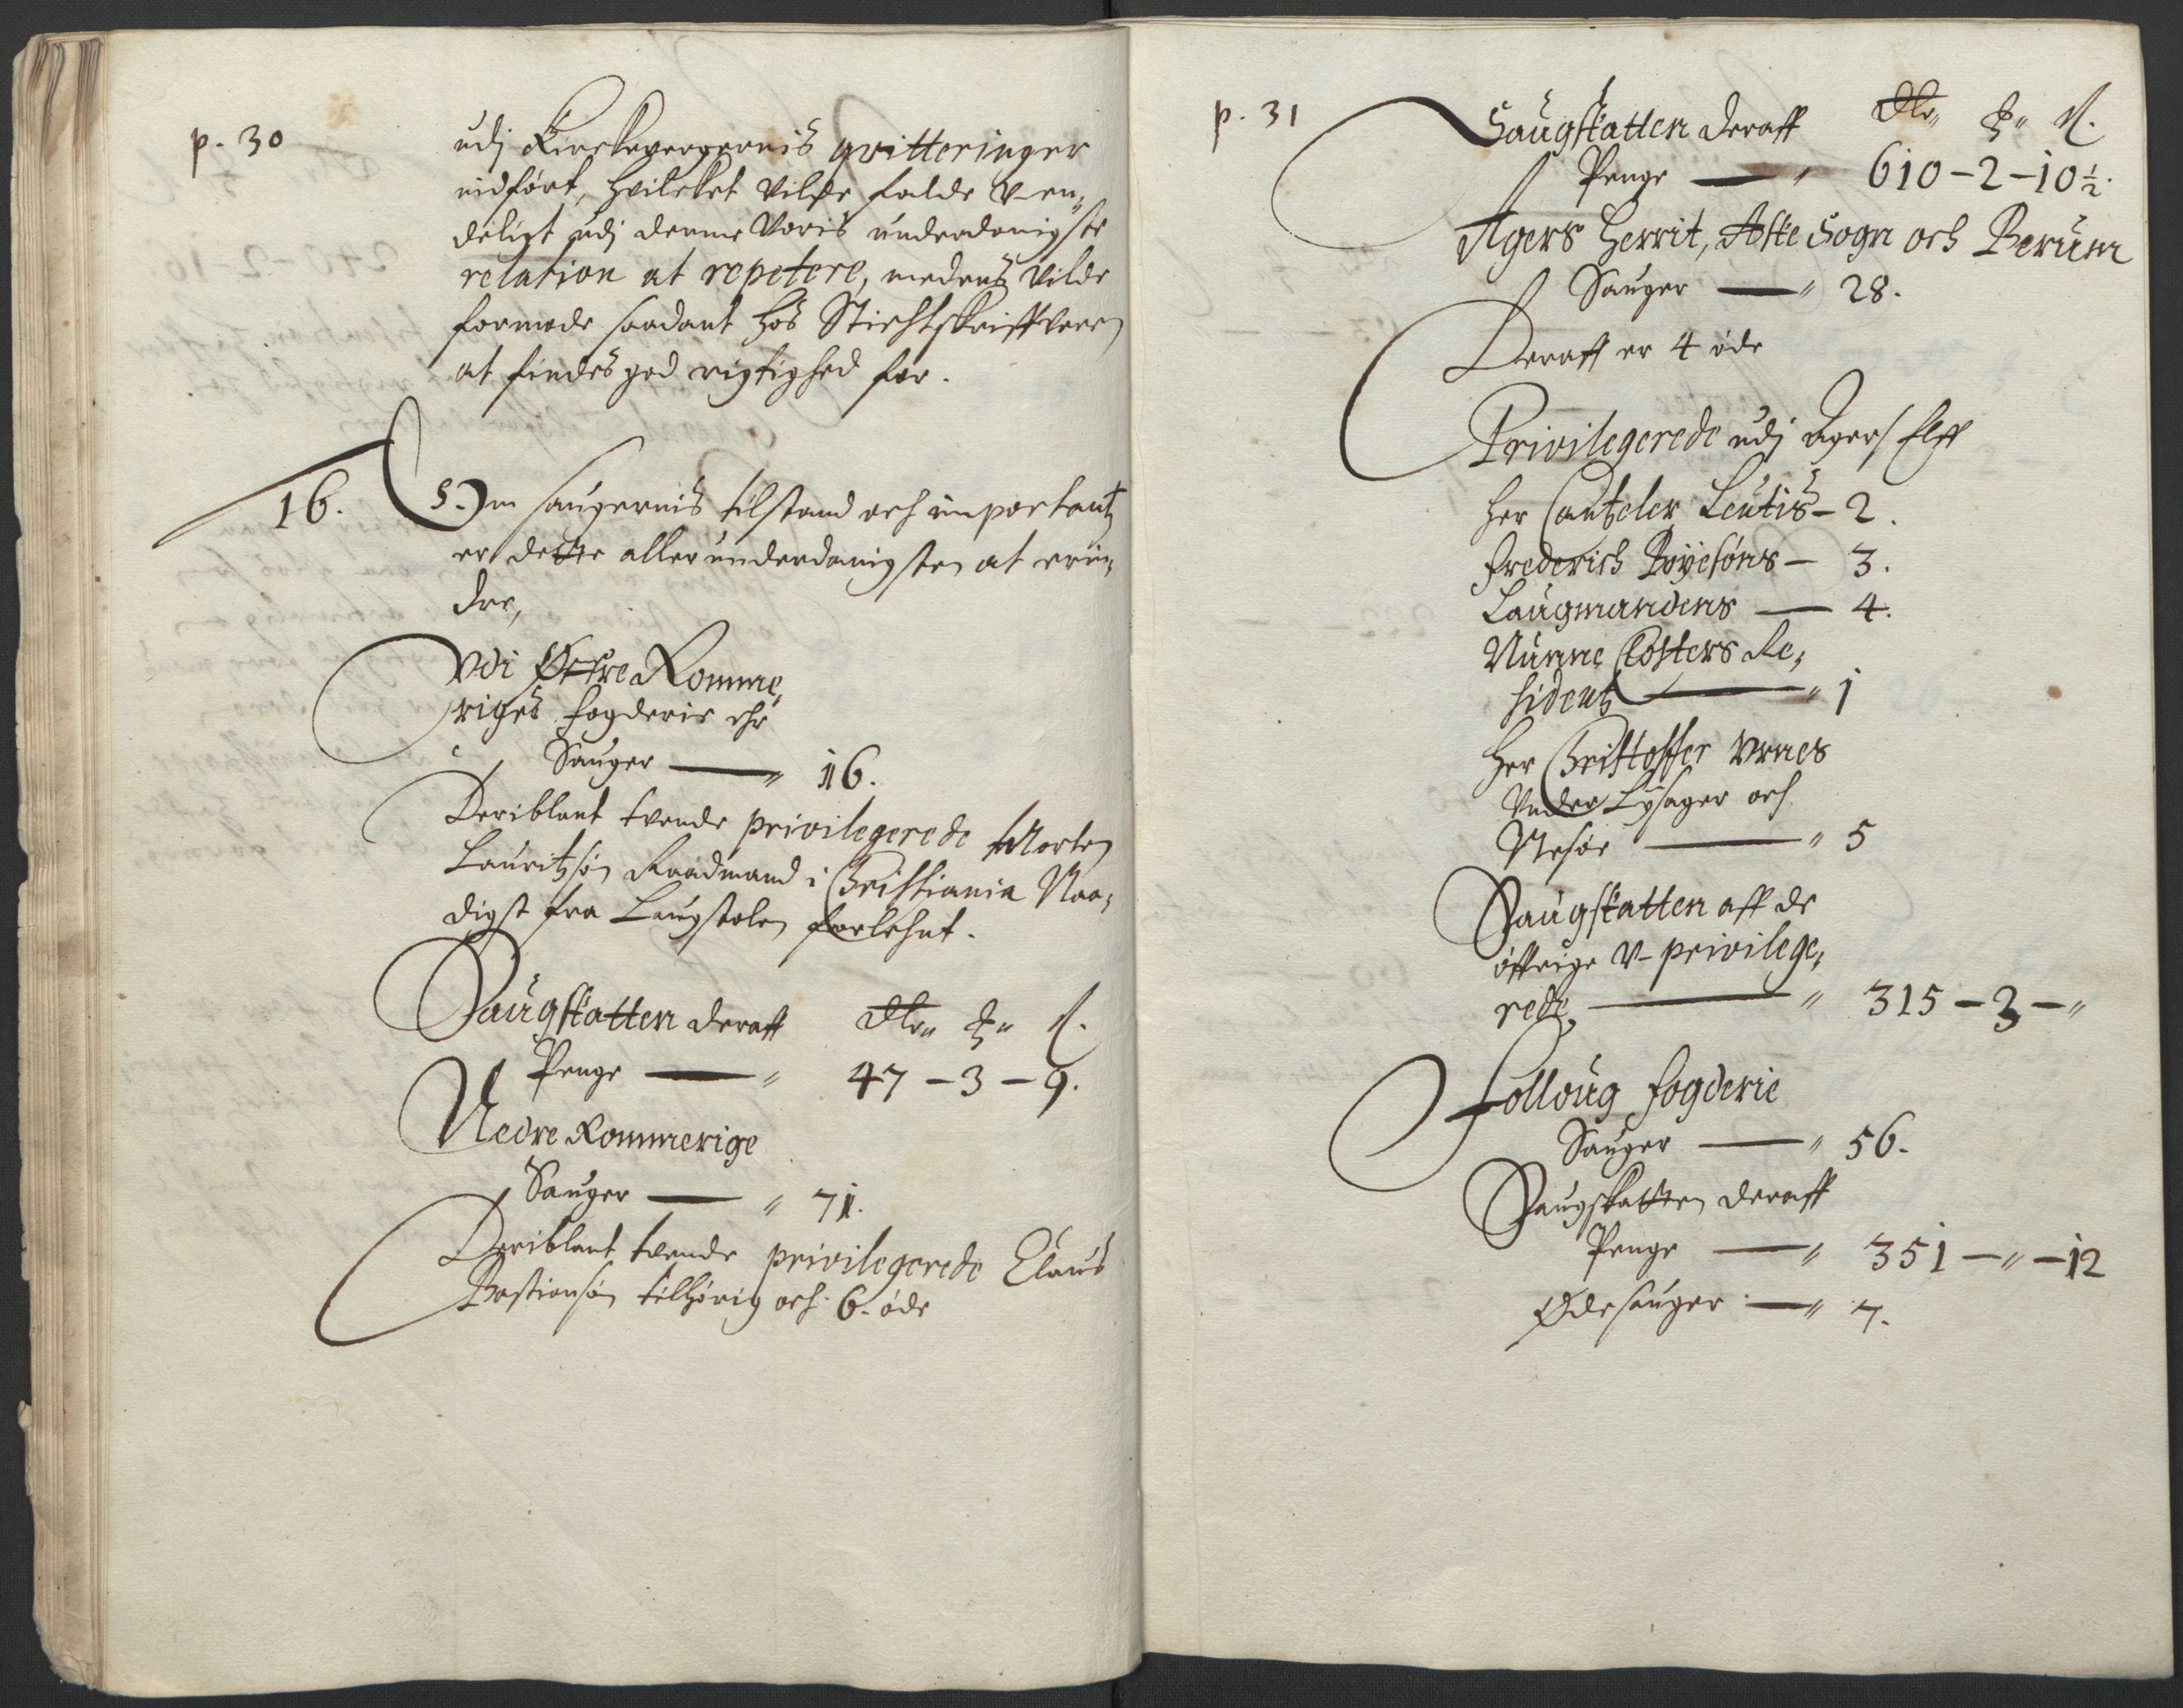 p. 30
udj Kirckevergernis qvitteringer
indført, hvilcket vilde falde v-en„
deligt udj denne Voris underdanigste
relation at repetere, medens vilde
formode saadant hos Stichtskriffveren
at findes god rigtighed for.
16. §. Om saugernis tilstand och importantz
er dette allerunderdanigsten at erin„
dre,
Vdi Øfre Romme„
riges fogderie ehr
Sauger — „ 16.
Deriblant tvende privilegerede Morten
Lauritzsøn Raadmand i Christiania Naa„
digst fra Laugstolen forlehnt.
Saugskatten deraff Dlr„ ₰„ ß.
Penge — „ 47 – 3 – 9.
Nedre Rommerige
Sauger — „ 71.
Deriblant tvende privilegerede Claus
Bastiansøn tilhørig och 6. øde
p. 31
Saugskatten deraff Dlr„ ₰„ ß.
Penge — „ 610 – 2 – 10½.
Agers Herrit, Aske Sogn och Berum
Sauger — „ 28.
Deraff er 4 øde
Privilegerede udj Agers Elff
Her Cantzeler Leutis – 2.
Frederich Boyesøns – 3.
Laugmandens — 4.
Nunne Closters Re„
sidentz — „ 1
Her Christoffer Vrnes
Vnder Lysager och
Nesøe — „ 5
Saugskatten aff de
øffrige v-privilege„
rede, — „ 315 – 3 – „
Folloug fogderie
Sauger — „ 56.
Saugskatten deraff
Penge — „ 351 – „ – 12
Øde sauger — „ 7.